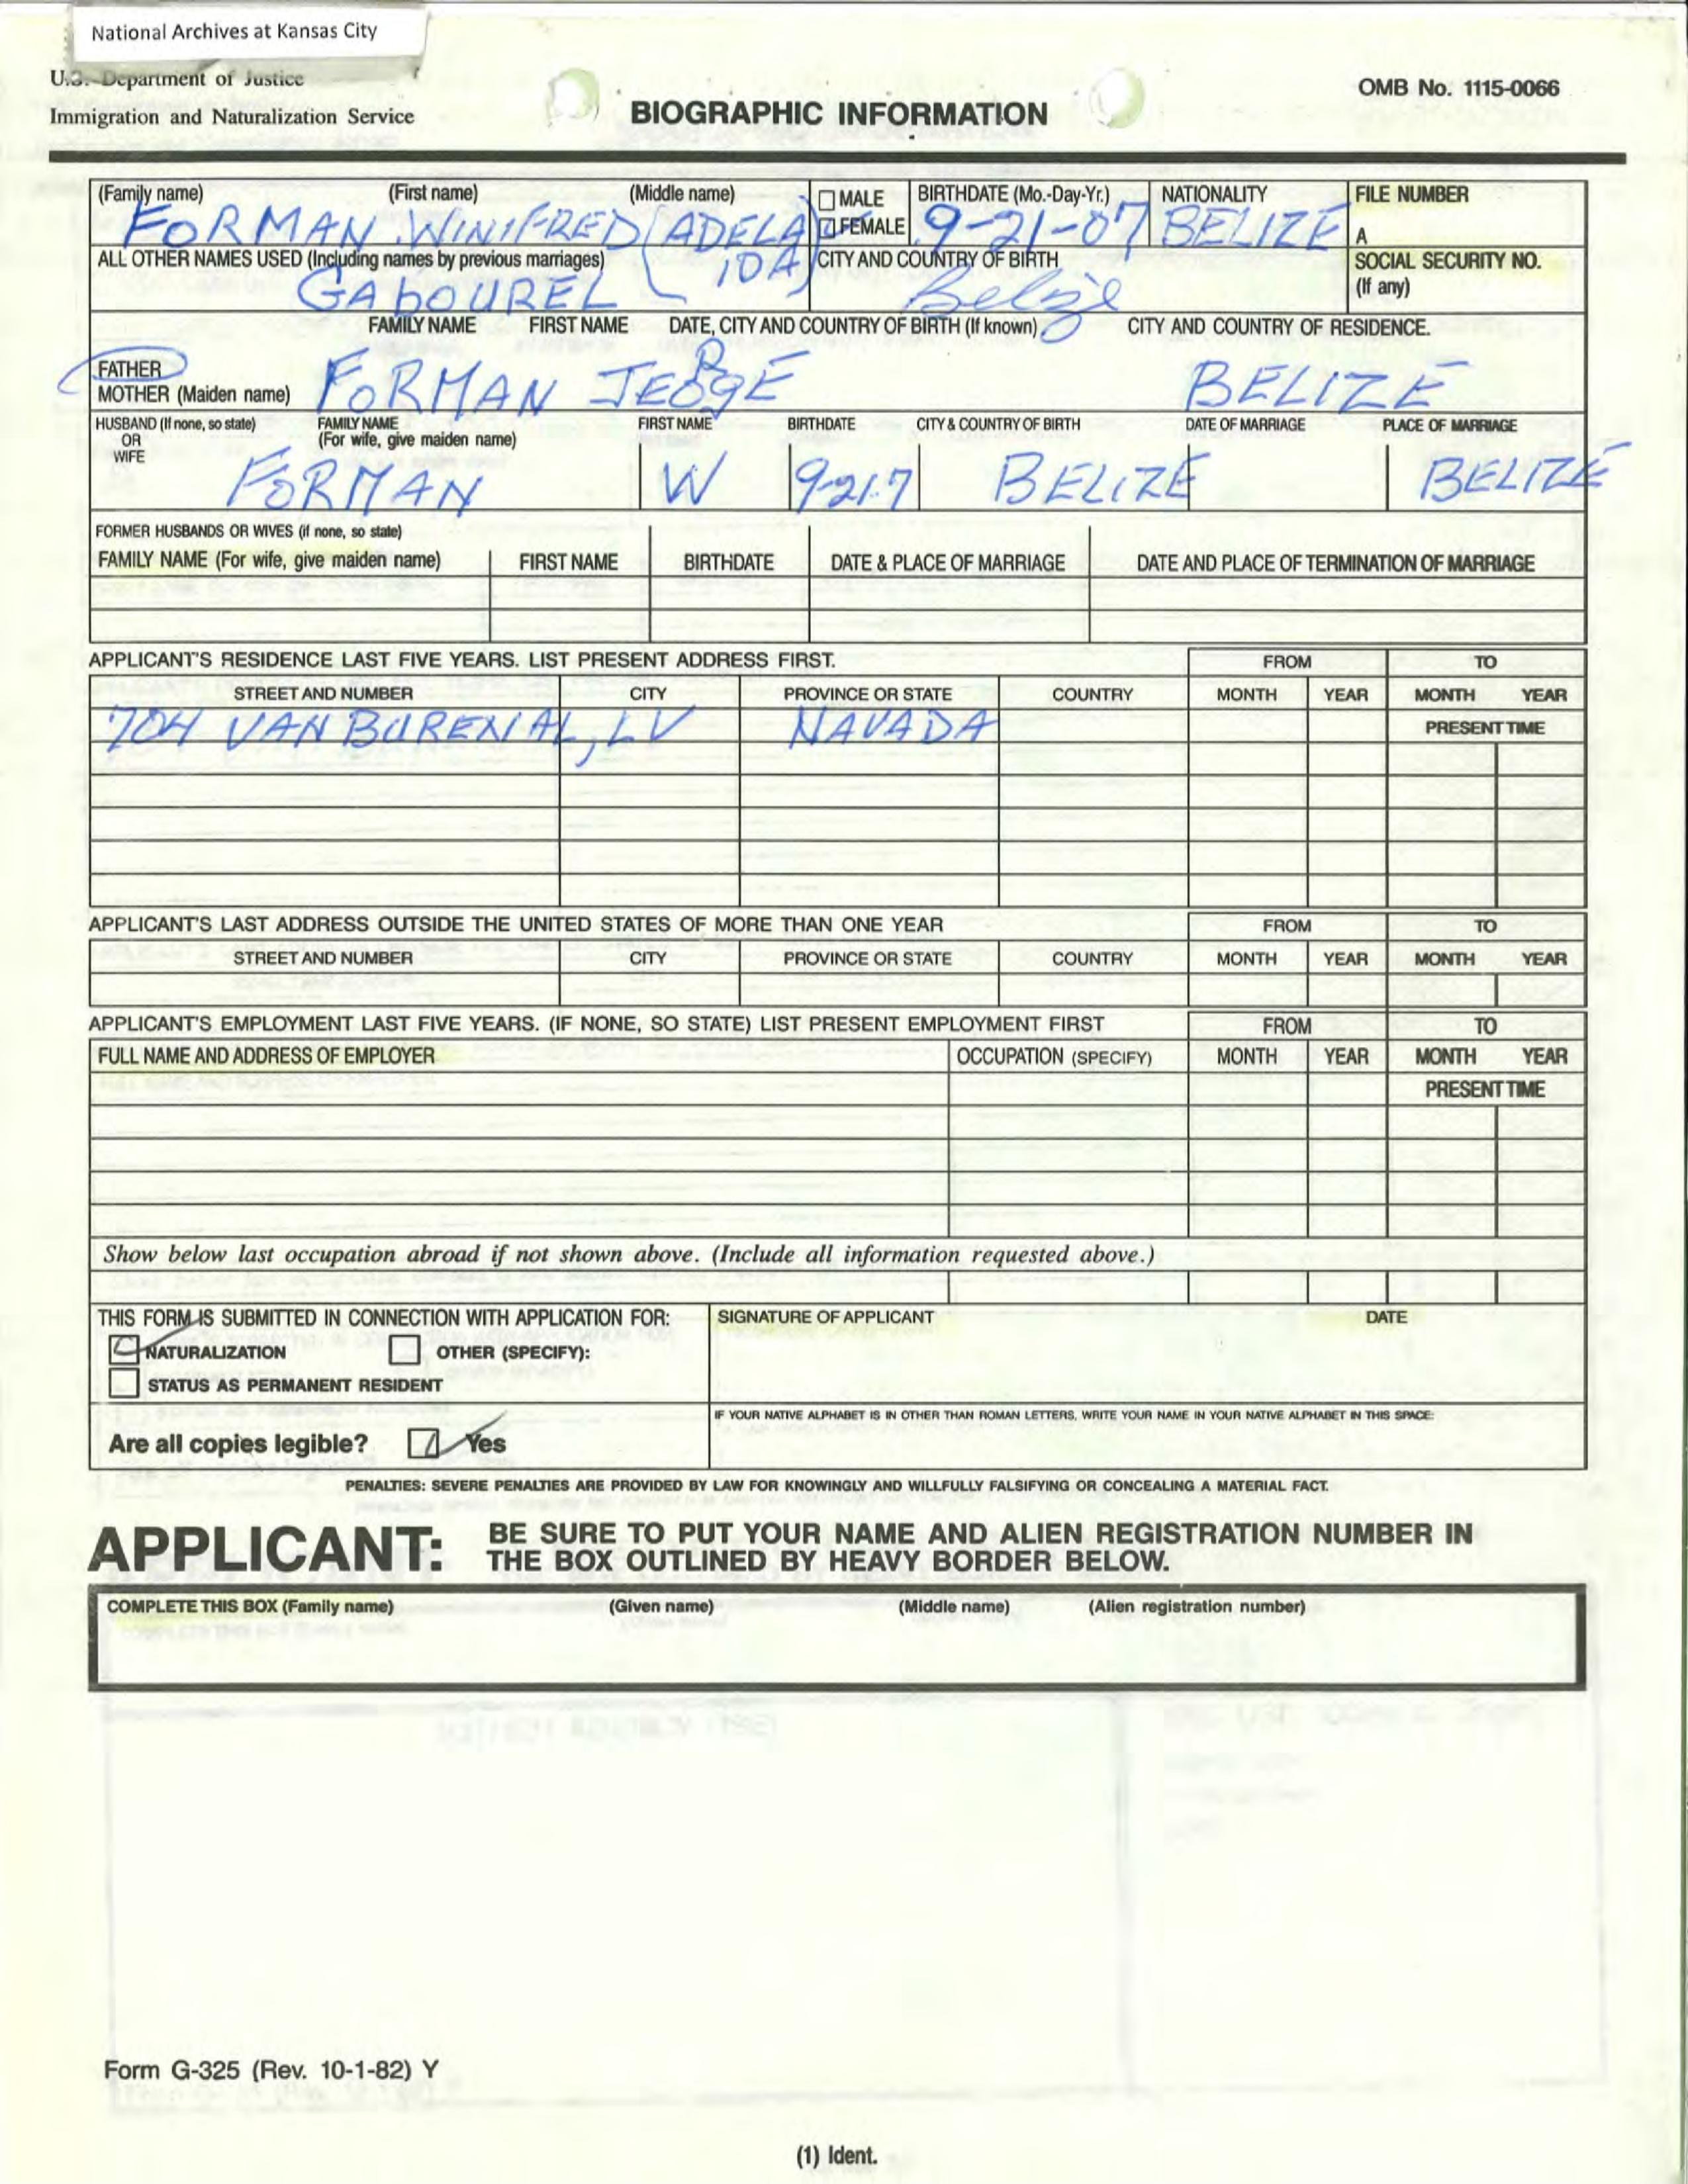 National Archives at Kansas City
U.S. Department of Justice
Immigration and Naturalization Service
OMB No. 1115-0066
BIOGRAPHIC INFORMATION
(Family name) (First name) (Middle name) MALE BIRTHDATE (Mo.-Day-Yr.) NATIONALITY FILE NUMBER
FORMAN WINIFRED (ADELA FEMALE 9-21-07 BELIZE A
ALL OTHER NAMES USED (Including names by previous marriages) IDA) CITY AND COUNTRY OF BIRTH SOCIAL SECURITY NO.
GABOUREL Belize (If any)
FAMILY NAME FIRST NAME DATE, CITY AND COUNTRY OF BIRTH (If known) CITY AND COUNTRY OF RESIDENCE.
FATHER
MOTHER (Maiden name) FORMAN JEORGE BELIZE
HUSBAND (If none, so state) FAMILY NAME FIRST NAME BIRTHDATE CITY & COUNTRY OF BIRTH DATE OF MARRIAGE PLACE OF MARRIAGE
OR (For wife, give maiden name)
WIFE
FORMAN W 9-21-7 BELIZE BELIZE
FORMER HUSBANDS OR WIVES (if none, so state)
FAMILY NAME (For wife, give maiden name) FIRST NAME BIRTHDATE DATE & PLACE OF MARRIAGE DATE AND PLACE OF TERMINATION OF MARRIAGE
APPLICANT'S RESIDENCE LAST FIVE YEARS. LIST PRESENT ADDRESS FIRST. FROM TO
STREET AND NUMBER CITY PROVINCE OR STATE COUNTRY MONTH YEAR MONTH YEAR
704 VAN BUREN AL, LV NAVADA PRESENT TIME
APPLICANT'S LAST ADDRESS OUTSIDE THE UNITED STATES OF MORE THAN ONE YEAR FROM TO
STREET AND NUMBER CITY PROVINCE OR STATE COUNTRY MONTH YEAR MONTH YEAR
APPLICANT'S EMPLOYMENT LAST FIVE YEARS. (IF NONE, SO STATE) LIST PRESENT EMPLOYMENT FIRST FROM TO
FULL NAME AND ADDRESS OF EMPLOYER OCCUPATION (SPECIFY) MONTH YEAR MONTH YEAR
PRESENT TIME
Show below last occupation abroad if not shown above. (Include all information requested above.)
THIS FORM IS SUBMITTED IN CONNECTION WITH APPLICATION FOR: SIGNATURE OF APPLICANT DATE
NATURALIZATION OTHER (SPECIFY):
STATUS AS PERMANENT RESIDENT
IF YOUR NATIVE ALPHABET IS IN OTHER THAN ROMAN LETTERS, WRITE YOUR NAME IN YOUR NATIVE ALPHABET IN THIS SPACE:
Are all copies legible? Yes
PENALTIES: SEVERE PENALTIES ARE PROVIDED BY LAW FOR KNOWINGLY AND WILLFULLY FALSIFYING OR CONCEALING A MATERIAL FACT.
APPLICANT: BE SURE TO PUT YOUR NAME AND ALIEN REGISTRATION NUMBER IN
THE BOX OUTLINED BY HEAVY BORDER BELOW.
COMPLETE THIS BOX (Family name) (Given name) (Middle name) (Alien registration number)
Form G-325 (Rev. 10-1-82) Y
(1) Ident.